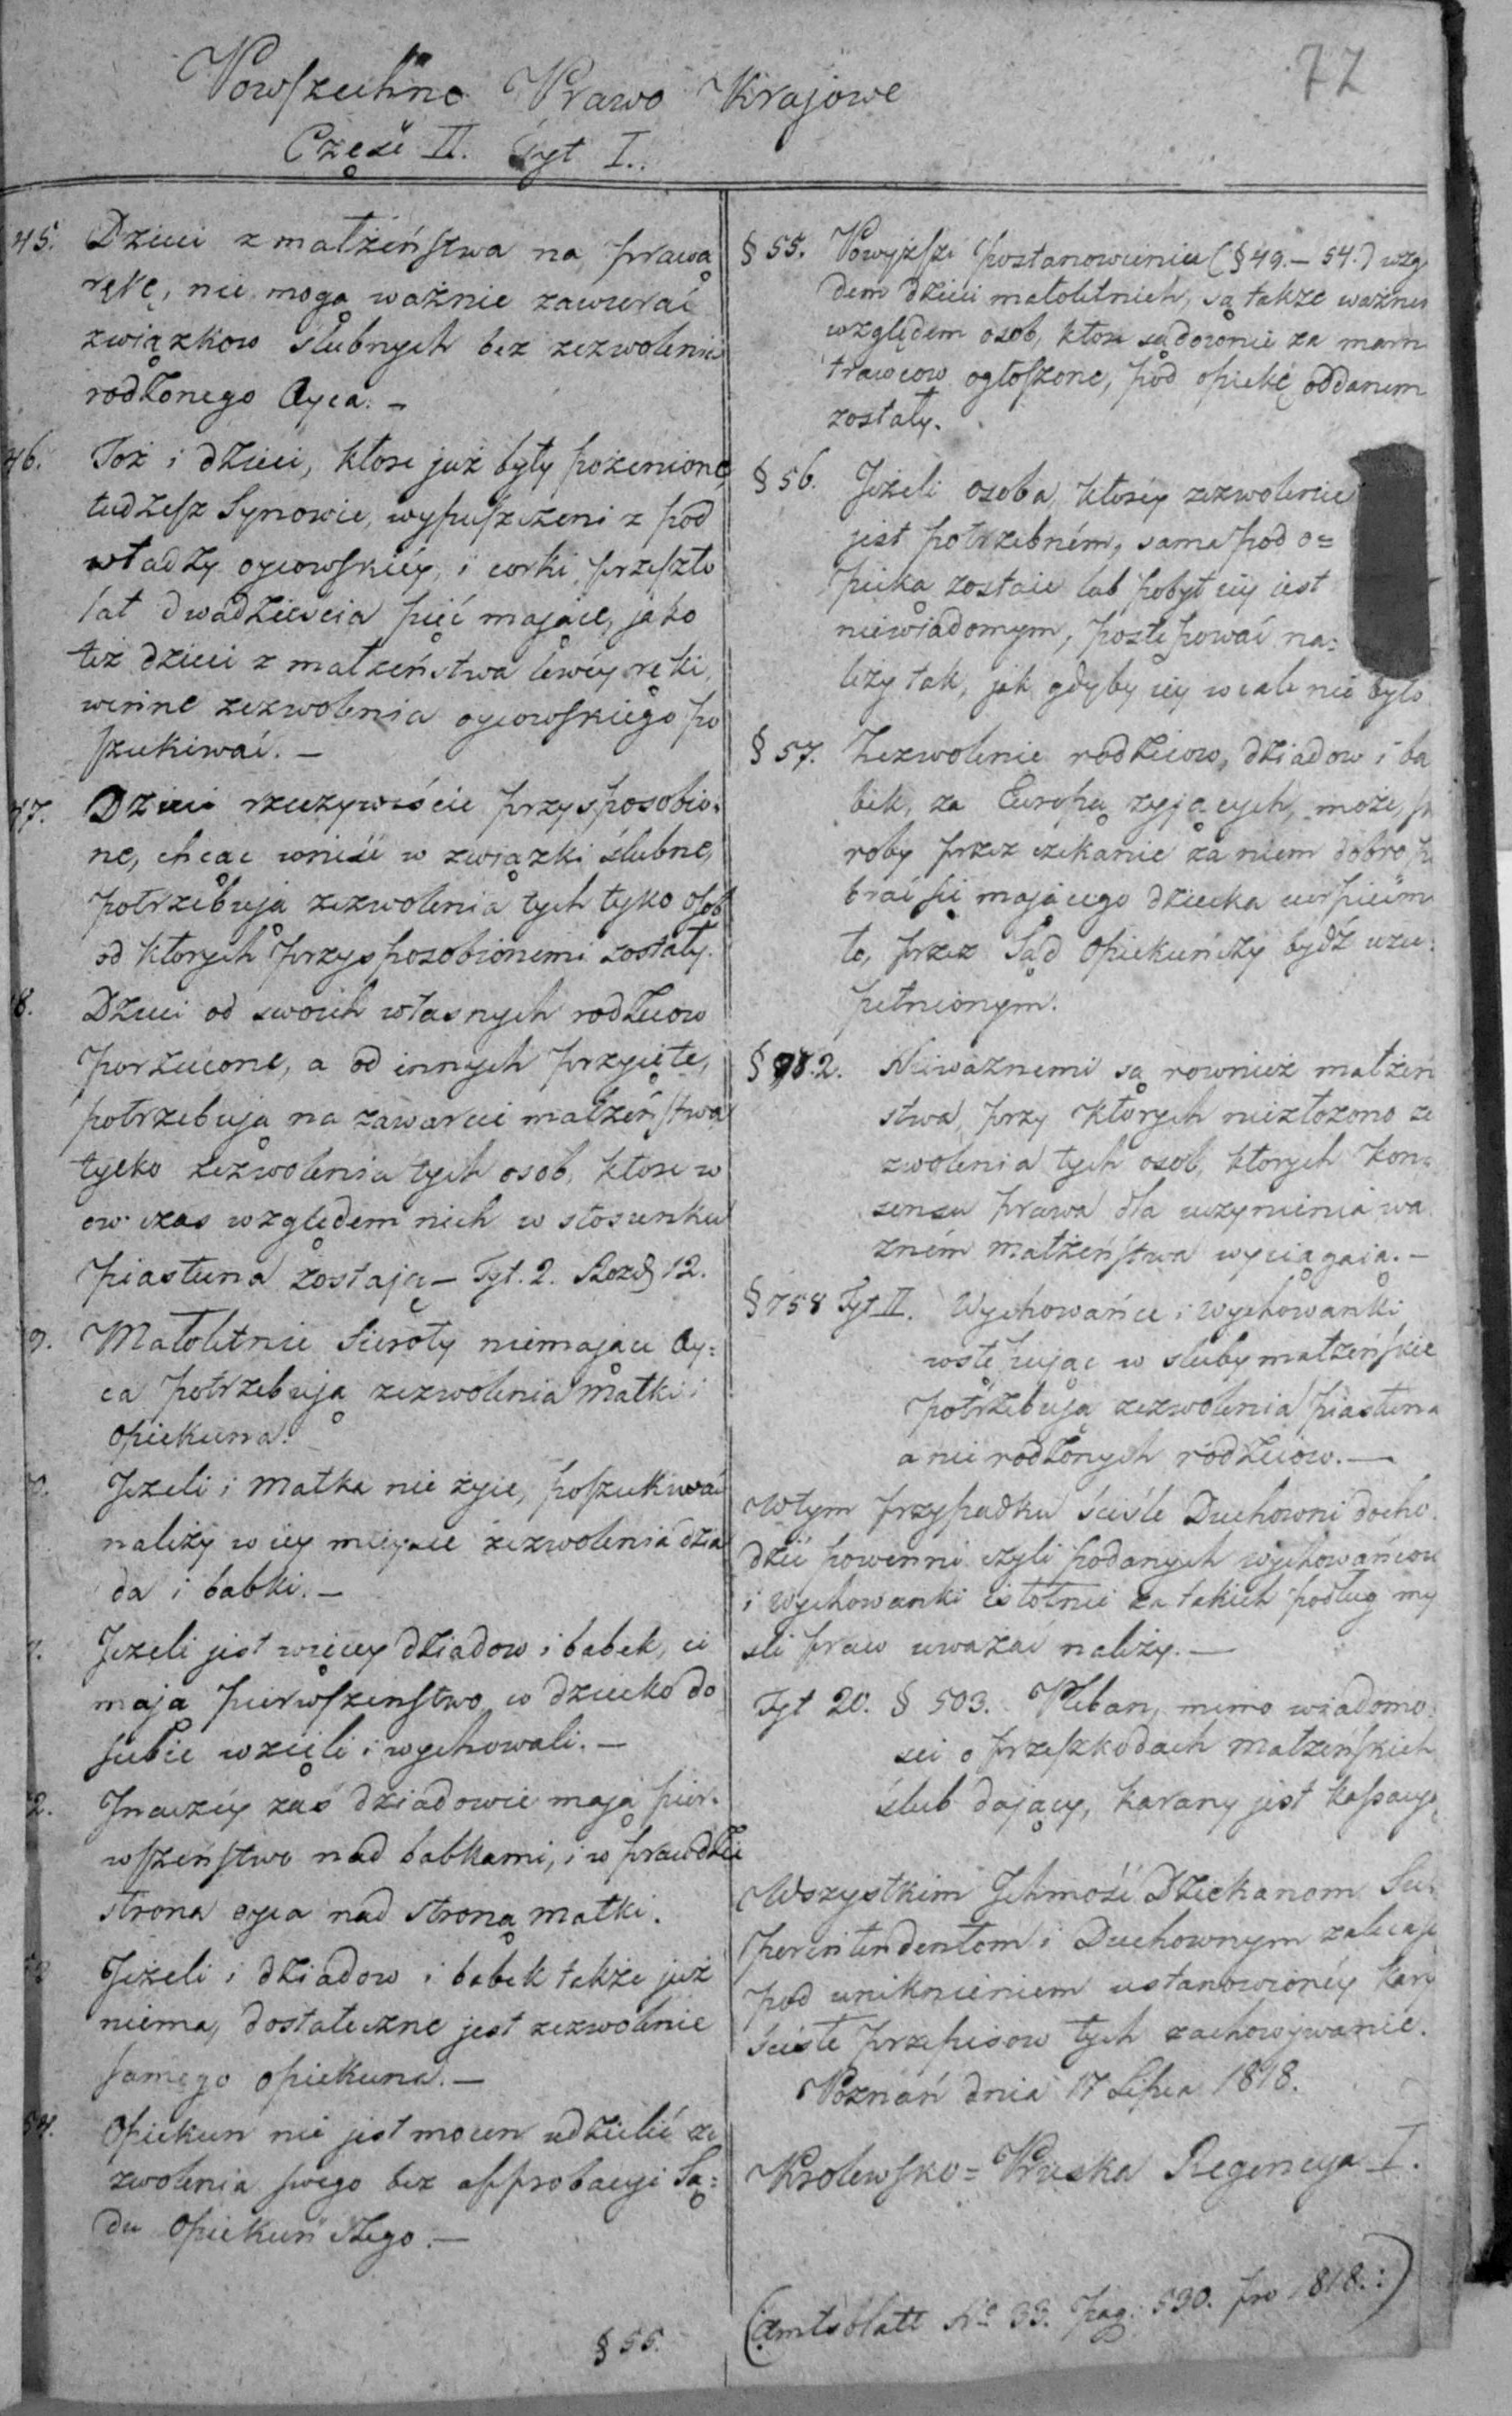 77
Powszechne Prawo Krajowe
Część II. Tyt I.
45. Dzieci z małżeństwa na prawą
rękę, nie mogą ważnie zawierać
związkow ślubnych bez zezwolenia
rodzonego Oyca. –
46. Toż i dzieci, ktore już były pożenione,
tudziesz Synowie, wypuszczeni z pod
władzy oycowskiéy, i corki, przeszło
lat dwadzieścia pięć maiące, jako
téż dzieci z małżeństwa lewéy ręki,
winne zezwolenia oycowskiego po
szukiwać. –
47. Dzieci rzeczywiście przysposobio-
ne, chcąc wniść w związki ślubne,
potrzebują zezwolenia tych tyko osob
od ktorych przysposobionemi zostały.
8. Dzieci od swoich własnych rodzicow
porzucone, a od innych przyięte,
potrzebują na zawarcie małżeństwa
tylko zezwolenia tych osob, ktore w
ow czas względem nich w stosunku
piastuna zostają – Tyt. 2. Rozd 12.
9. Małoletnie Sieroty niemaiące Oy=
ca potrzebują zezwolenia matki i
opiekuna.
Jeżeli i matka nie żyie, poszukiwać
należy w iéy mieysce zezwolenia dzia
da i babki. –
Jeżeli jest więcey dziadow i babek, ci
mają pierwszenstwo, co dziecko do
siebie wzięli i wychowali. –
2. Inaczéy zaś dziadowie mają pier-
wszeństwo nad babkami, i w prawdzie
strona oyca nad stroną matki.
Jeżeli i dziadow i babek także już
niema, dostateczne jest zezwolenie
samego opiekuna. –
54. Opiekun nie jest mocen udzielić ze
zwolenia swego bez approbacyi Są=
du Opiekuńczego. –
§ 55.
§ 55. Powyższe postanowienia (§ 49. – 54.) wzg
dem dzieci małoletnich, są także ważne
względem osob, ktore sądownie za marn
trawcow ogłoszone, pod opiekę oddanem
zostały.
§ 56. Jeżeli osoba, ktoréy zezwolenie
jest potrzebném, sama pod o=
pieką zostaie lub pobyt iéy iest
niewiadomym, postępować na=
leży tak, jak gdyby iéy wcale nie było
§ 57. Zezwolenie rodzicow, dziadow i ba
bek, za Europą żyjących, może,
roby przez czekanie za niem dobro
brać się mającego dziecka cierpieć m
to, przez Sąd Opiekuńczy bydź uzu=
pełnionym.
§ 98.2. Nieważnemi są rownież małżeń
stwa, przy których niezłożono ze
zwolenia tych osob, ktorych kon=
sensu prawa dla uczynienia wa
żném małżeństwa wyciągaią. –
§ 758 Tyt II. Wychowańce i wychowanki
wstępując w śluby małżeńskie
potrzebują zezwolenia piastuna
a nie rodzonych rodzicow. –
W tym przypadku ściśle Duchowni docho
dzić powinni czyli podanych wychowańcow
i wychowanki istotnie za takich podług my
śli praw uważać należy. –
Tyt 20. § 503. Pleban, mimo wiadomo=
ści o przeszkodach małżeńskich
ślub dający, karany jest kassacyą
Wszystkim Ichmość Dziekanom Su
perintendentom i Duchownym zaleca się
pod uniknieniem ustanowionéy kary
ściśłe przepisow tych zachowywanie.
Poznań dnia 17 Lipca 1818.
Krolewsko = Pruska Regencya I.
(Amtsblatt No 33. pag: 530. pro 1818.:)